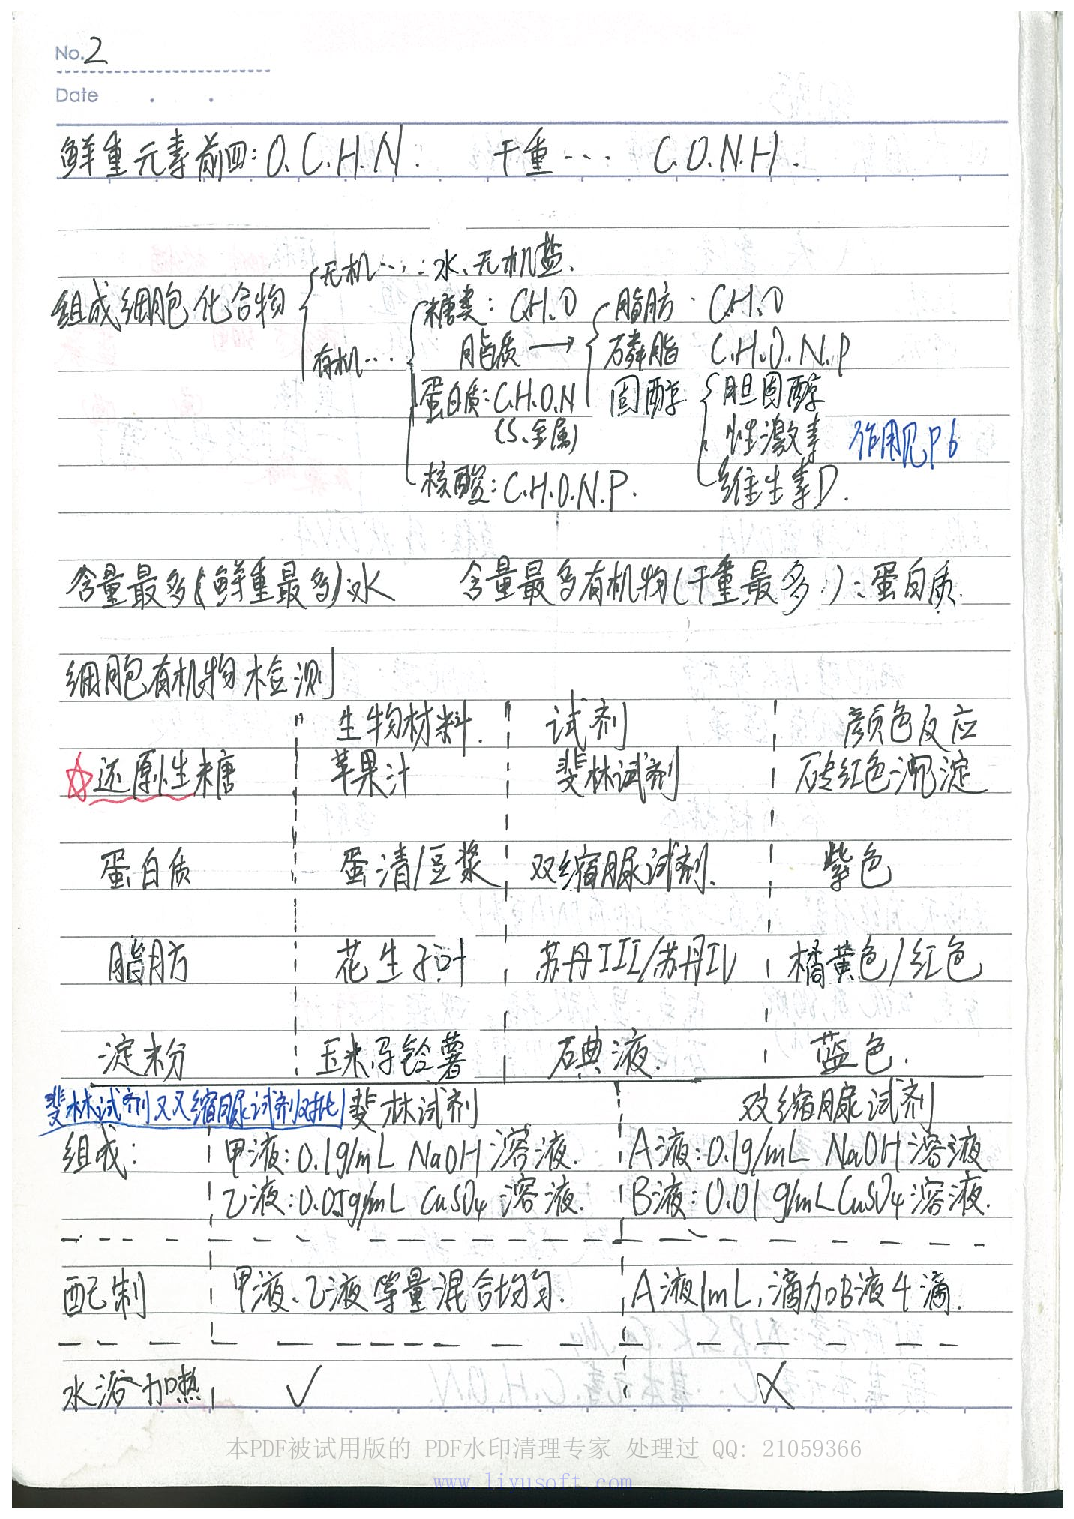 No. 2
Date
鲜重元素前四：O.C.H.N. 干重… C.O.N.H.
组成细胞化合物
无机…：水、无机盐.
有机…
糖类：C.H.O
脂质 → 脂肪 C.H.O
磷脂 C.H.O.N.P
固醇
胆固醇
性激素
维生素D.
作用见P6
蛋白质：C.H.O.N
(S、金属)
核酸：C.H.O.N.P.
含量最多(鲜重最多)水 含量最多有机物(干重最多)：蛋白质.
细胞有机物检测
生物材料. 试剂 颜色反应
☆还原性糖 苹果汁 斐林试剂 砖红色沉淀
蛋白质 蛋清/豆浆 双缩脲试剂. 紫色
脂肪 花生子叶 苏丹III/苏丹IV 橘黄色/红色
淀粉 玉米、马铃薯 碘液. 蓝色.
斐林试剂双缩脲试剂对比 斐林试剂 双缩脲试剂
组成： 甲液：0.1g/mL NaOH溶液. A液：0.1g/mL NaOH溶液
乙液：0.05g/mL CuSO4 溶液. B液：0.01g/mL CuSO4溶液.
配制 甲液、乙液等量混合均匀. A液1mL,滴加B液4滴.
水浴加热 ✓ ×
本PDF被试用版的 PDF水印清理专家 处理过 QQ: 21059366
www.liyusoft.com